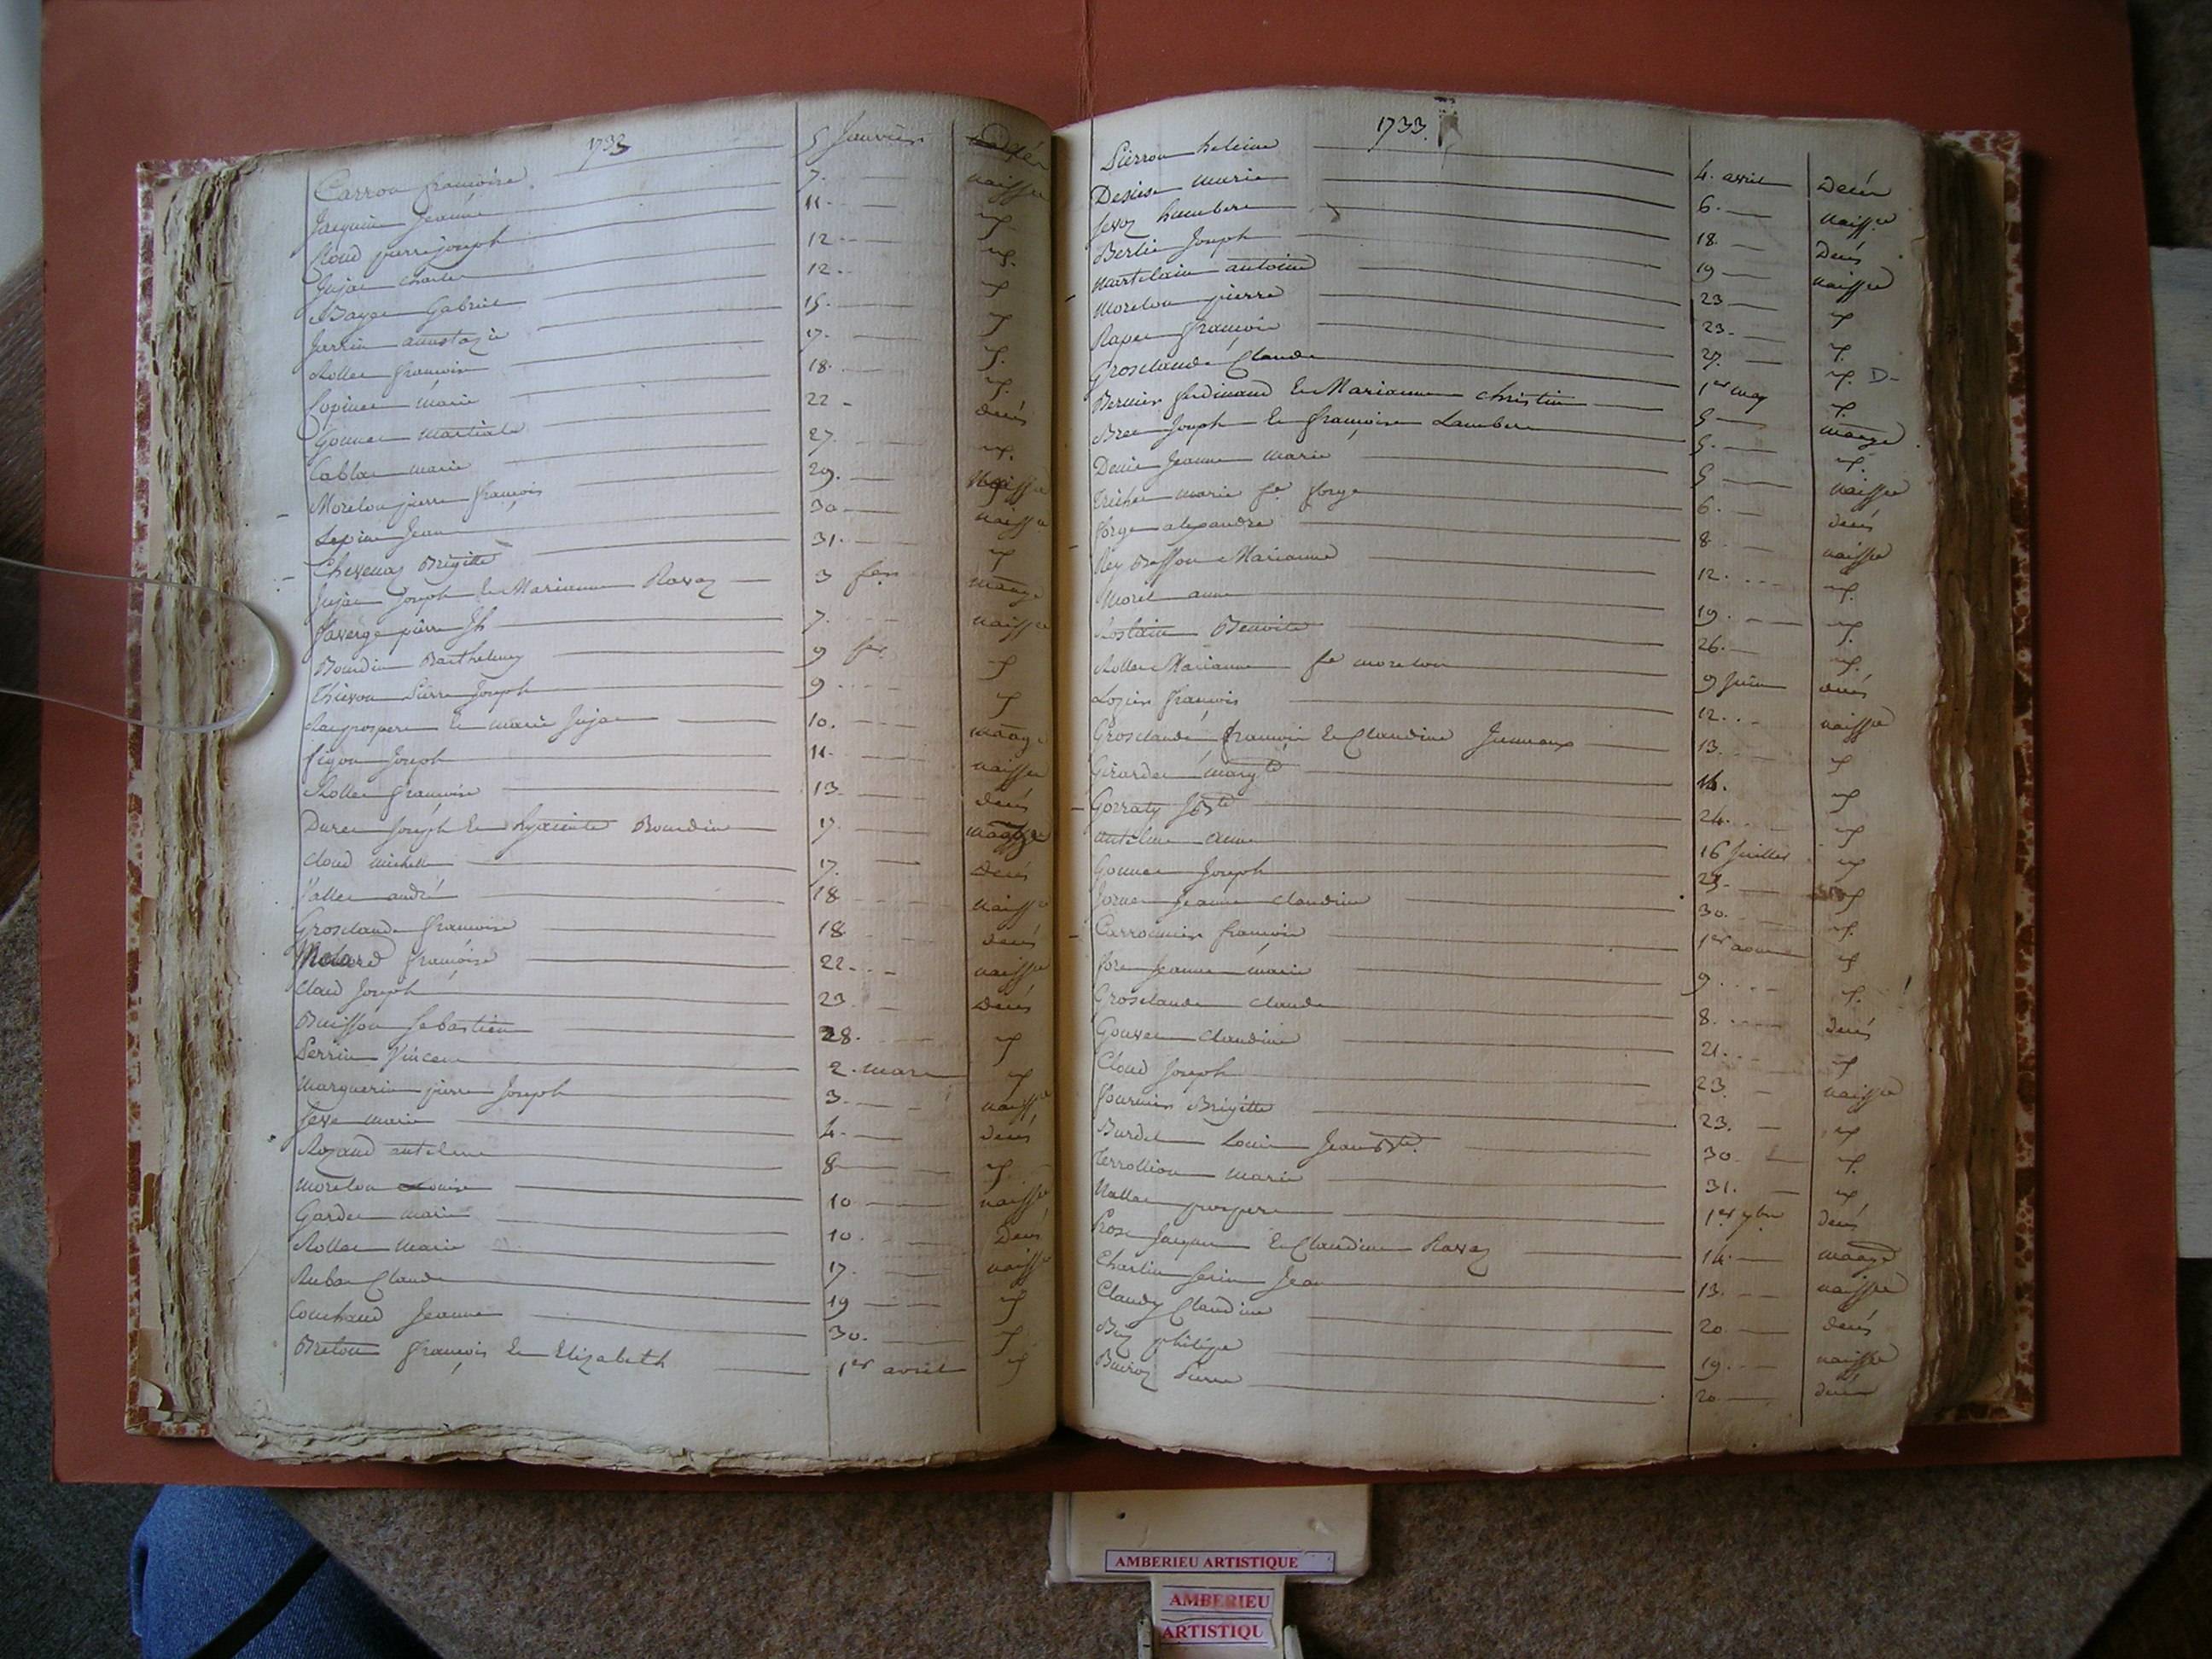 1733
Carron françoise 5 Janvier
Jacquin Jeanne 7. naisse
Roud pierre joseph 11.
Jujat charle 12
Bayet Gabriel 12.
Jarrin anastazie 15.
Rollet françoise 17.
Copinet marie 18.
Gonnet martiale 22 décès
Cablat marie 27.
Morelon pierre françois 29. naisse
Lepin Jean 30 naisse
Chevenaz Brigitte 31.
Jujat Joseph et Marianne Ravaz 3 fev mãage
favergé pierre Jh 7. naisse
Bourdin Barthelemy 9 fev
Thievon Pierre Joseph 9
prospere et marie Jujat 10. mãage
figon Joseph 11. naisse
Rollet françoise 13. décès
Duret Joseph et hyacinte Bourdin 17. mãage
cloud michelle 17. Décès
Vallet andré 18 naisse
Grosclaude françoise 18 décès
Molard françoise 22 naisse
Claud Joseph 23. Décès
Buisson Sebastien 28.
Perrin Vincent 2. mars
Marguerin pierre Joseph 3. naisse
Seve marie 4. décès
Rozand antelme 8
Morelon Louise 10 naisse
Gardet marie 10. Décès
Rollet Marie 17. naisse
Aubat Claude 19
Couchaud Jeanne 30.
Breton françois et Elizabeth 1er avril
1733.
Pierron heleine 4. avril Décès
marie 6. naisse
humbert 18. Décès
Berlie Joseph 19 naisse
Martelain antoine 23
Morelon pierre 23.
Rapet françois 27.
Grosclaude Claude 1er may
Bernier ferdinand et Marianne christin 5 mãage
Bret Joseph et françoise Lambert 5.
Denis Jeanne Marie 5 naisse
Trichet marie fe forge 6. décès
forge alexandre 8 naisse
Rey Besson Marianne 12.
Morel anne 19.
Rostain Benoite 26.
Rollet Marianne fe morelon 9 Juin décès
Lozier françois 12. naisse
Grosclaude françois et Claudine Juneaux 13.
Girardet margte 14.
Gorraty J Bte 24.
antelme anne 16 Juillet
Gonnet Joseph 23.
Jornet Jeanne claudine 30.
Carronnier françois 1er aoust
fore Jeanne marie 9
Grosclaude claude 8. décès
Gouvet Claudine 21.
Cloud Joseph 23. naisse
fournier Brigitte 23.
Burdet Louis Jean Bte 30
Terrollion marie 31.
Nallet prospere 1er 7bre décès
Pros Jacques et Claudine Ravaz 14. mãage
Charlin Serin Jean 13. naisse
Claudy Claudine 20 décès
Buy philipe 19. naisse
Buiroz Pierre 20 décès
AMBERIEU ARTISTIQUE
AMBERIEU
ARTISTIQU